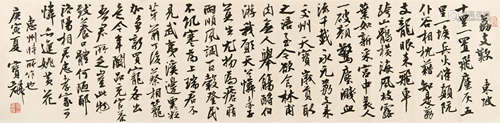 荔支歎 東坡
十里一置飛塵灰五
里一堠兵火催顛阬
仆谷相枕藉知是荔
支龍眼來飛車
跨山鶻橫海風枝露
葉如新采宮中美人
一破顏驚塵濺血
流千載永元荔支來
交州天寶歲貢取
之涪至今欲食林甫
肉無人舉觴酹伯
游我願天公憐赤子
莫生尤物為瘡痏
雨順風調百穀登民
不飢寒為上瑞君不
見武夷溪邊粟粒
芽前丁後蔡相籠
加爭新買寵各出意
今年鬥品充官茶
吾君所乏豈此物
致養口體何陋耶
洛陽相君忠孝家可
憐亦進姚黃花
惠州時所作也
庚寅夏 寶